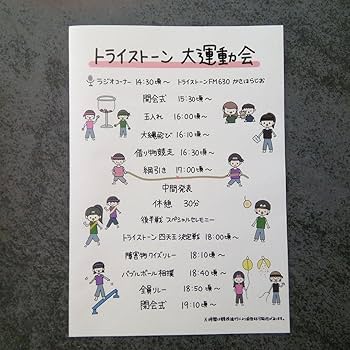 トライストーン 大運動会
ラジオコーナー 14:30頃〜 トライストーンFM630 かさはらじお
開会式 15:30頃〜
玉入れ 16:00頃〜
大縄飛び 16:10頃〜
借り物競走 16:30頃〜
綱引き 17:00頃〜
中間発表
休憩 30分
後半戦 スペシャルセレモニー
トライストーン四天王決定戦 18:00頃〜
障害物クイズリレー 18:10頃〜
バブルボール相撲 18:40頃〜
全員リレー 18:50頃〜
閉会式 19:10頃〜